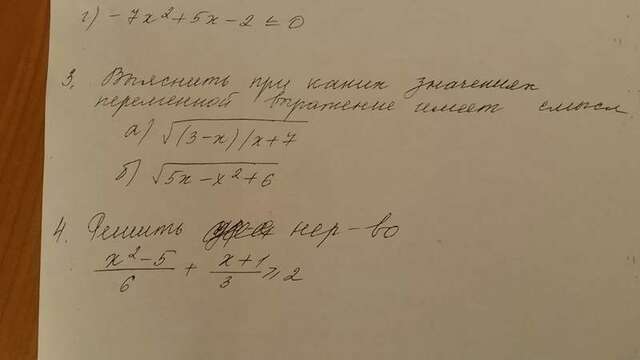 г) -7x²+5x-2 ≤ 0
3. Выяснить при каких значениях
переменной выражение имеет смысл
а) √(3-x)(x+7
б) √5x-x²+6
4. Решить нер-во
x²-5/6 + x+1/3 ≥ 2